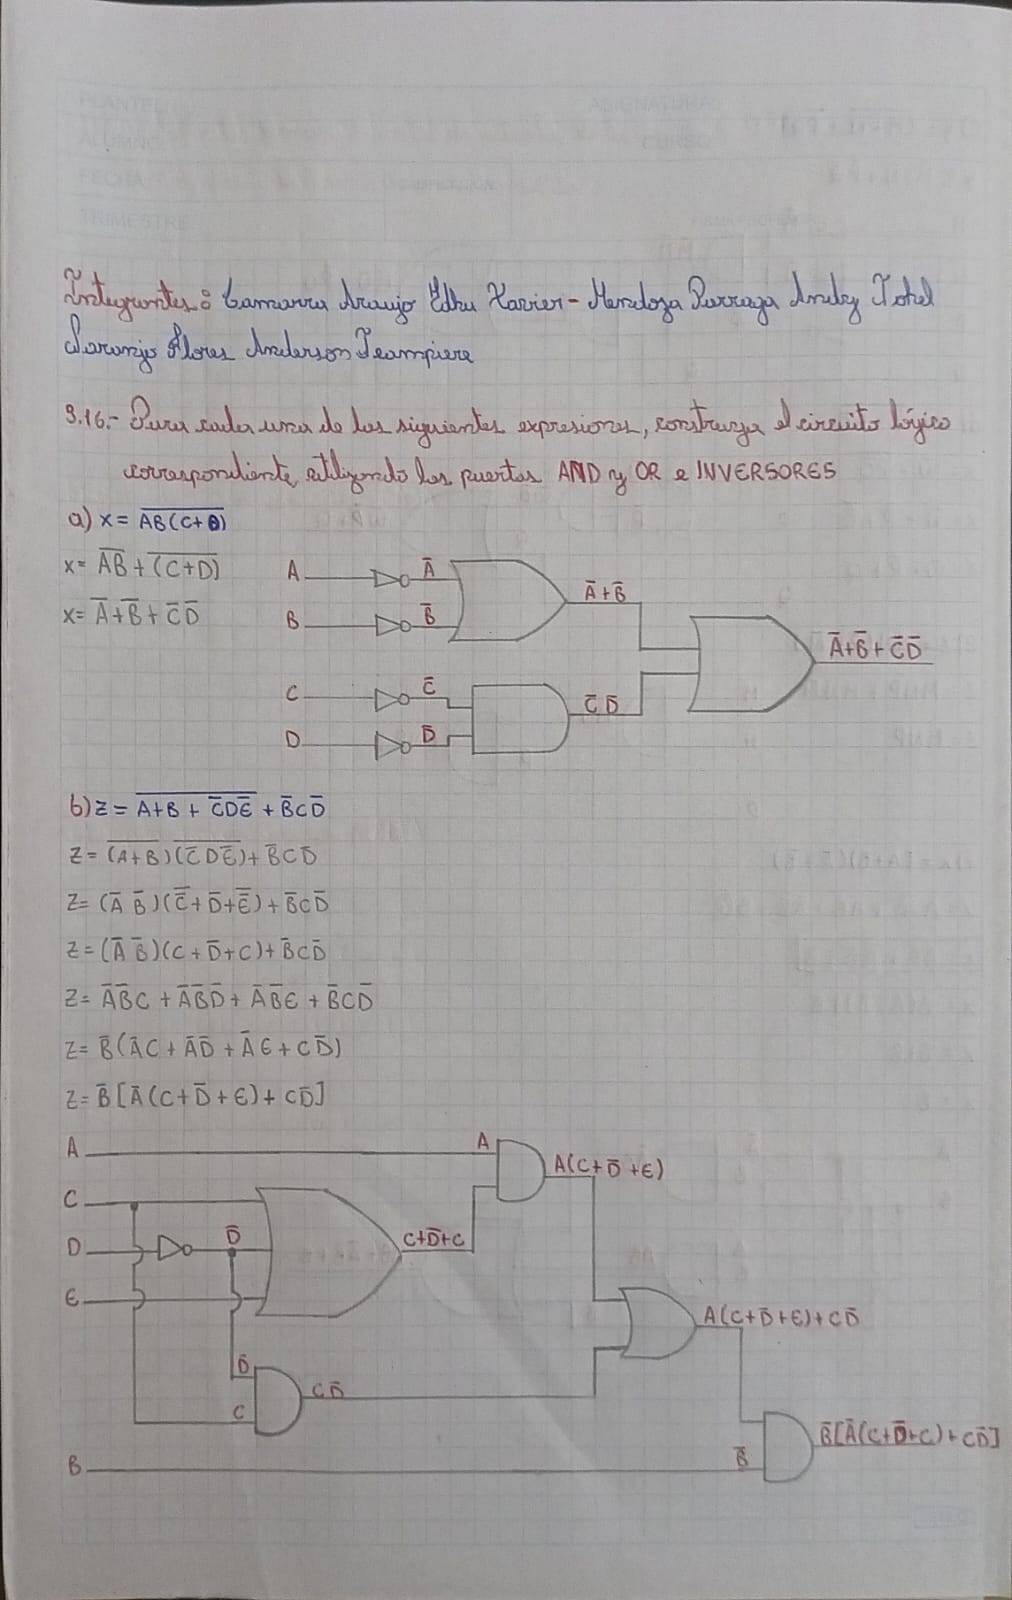 PLANTEL ASIGNATURA
ALUMNO CURSO
FECHA
TRIMESTRE
Integrantes: Camarra Araujo Edhu Xavier - Mendoza Parraga Andry Johel
Naranjo Flores Anderson Jeampiere
3.16.- Para cada una de las siguientes expresiones, construya el circuito lógico
correspondiente, utilizando las puertas AND y OR e INVERSORES
a) x = \overline{AB(C+D)}
x = \overline{AB} + \overline{(C+D)}
x = A̅+B̅+C̅D̅
A A̅
B B̅
A̅+B̅
C C̅
D D̅
C̅D̅
A̅+B̅+C̅D̅
b) z = \overline{A+B+C̅DE̅} + B̅CD̅
z = \overline{(A+B)} \overline{(C̅DE̅)} + B̅CD̅
z = (A̅ B̅)(\overline{C̅}+D̅+\overline{E̅}) + B̅CD̅
z = (A̅ B̅)(C+D̅+C) + B̅CD̅
z = A̅B̅C + A̅B̅D̅ + A̅B̅E + B̅CD̅
z = B̅(A̅C + A̅D̅ + A̅E + CD̅)
z = B̅[A̅(C+D̅+E) + CD̅]
A A
A(C+D̅+E)
C
D D̅
C+D̅+C
E
A(C+D̅+E)+CD̅
D̅
C
CD̅
B B̅
B̅[A̅(C+D̅+C)+CD̅]